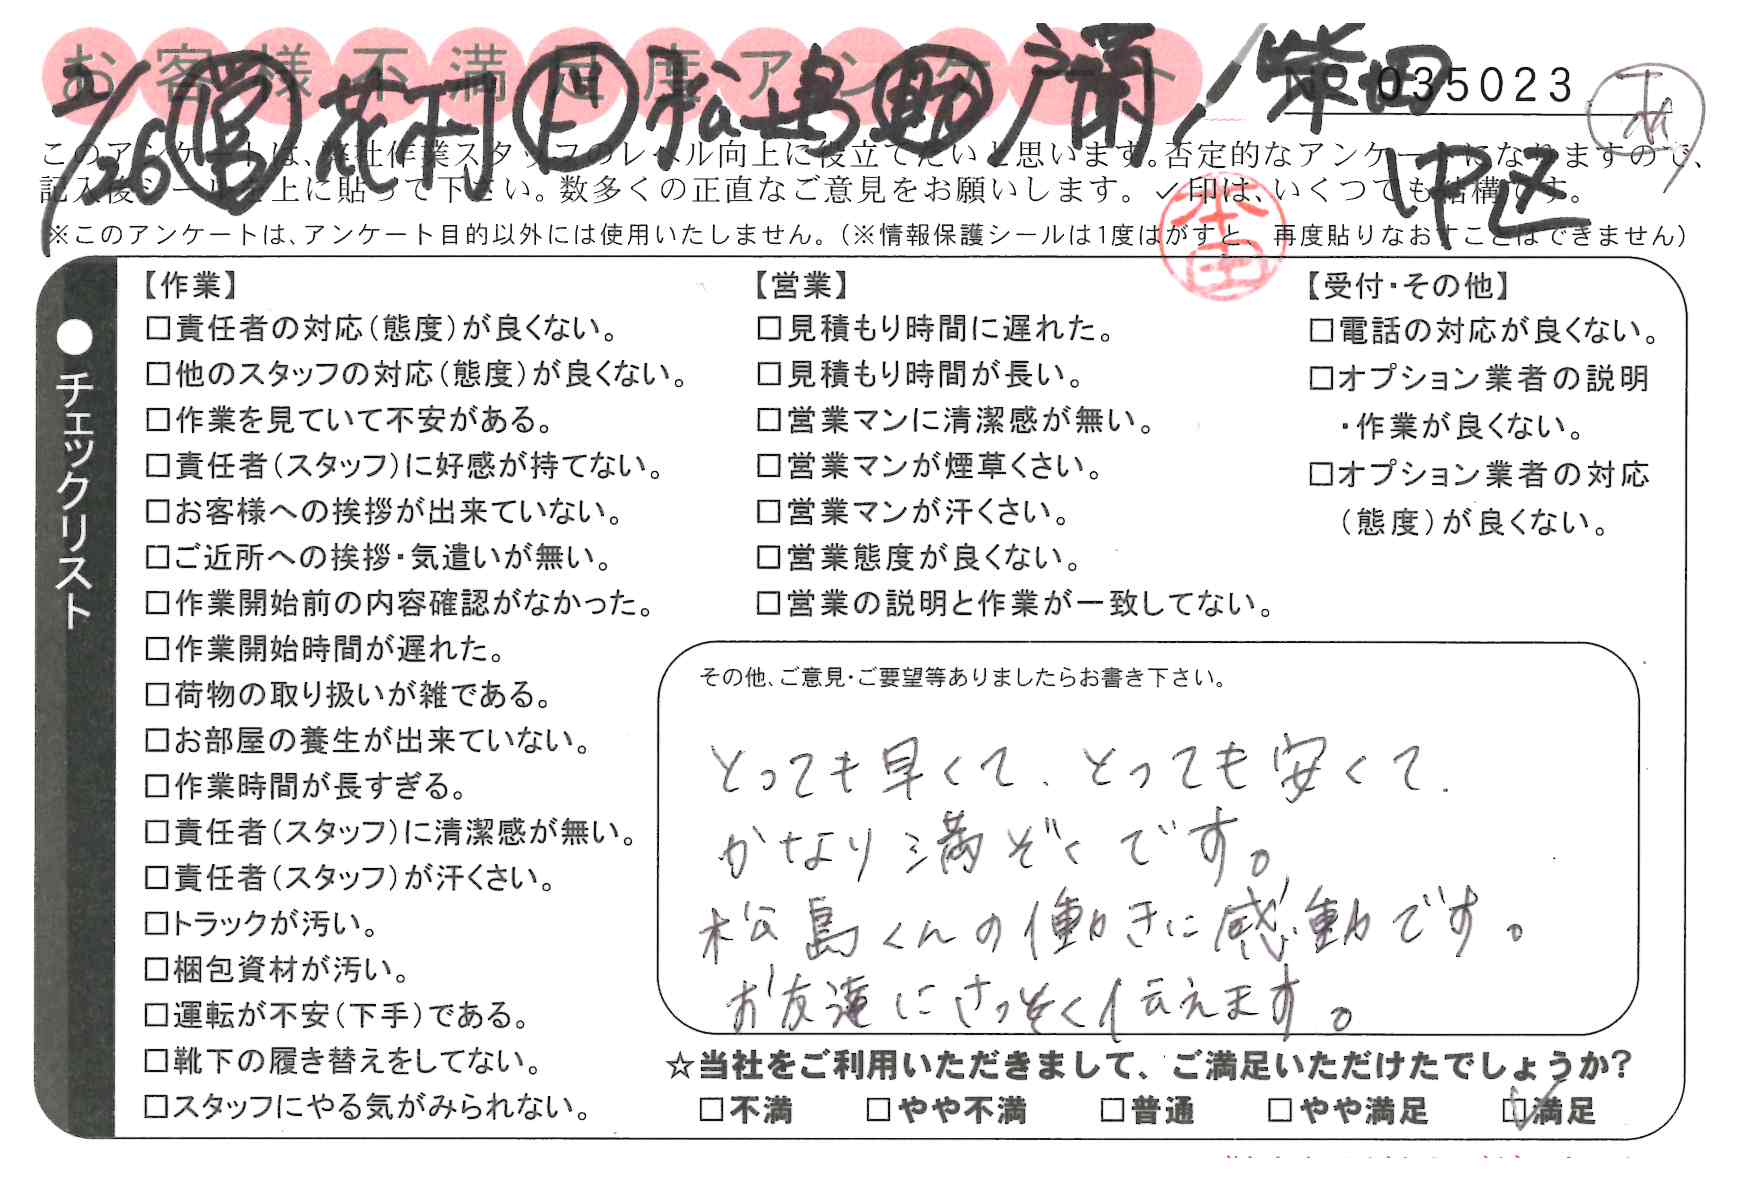 お客様不満足度アンケート
No 035023
2/26 営 花村 上 松島 助 涌 / 柴田
中区
このアンケートは、弊社作業スタッフのレベル向上に役立てたいと思います。否定的なアンケートになりますので、
記入後シールを上に貼って下さい。数多くの正直なご意見をお願いします。✓印は、いくつでも結構です。
※このアンケートは、アンケート目的以外には使用いたしません。（※情報保護シールは1度はがすと、再度貼りなおすことはできません）
●チェックリスト
【作業】
□責任者の対応（態度）が良くない。
□他のスタッフの対応（態度）が良くない。
□作業を見ていて不安がある。
□責任者（スタッフ）に好感が持てない。
□お客様への挨拶が出来ていない。
□ご近所への挨拶・気遣いが無い。
□作業開始前の内容確認がなかった。
□作業開始時間が遅れた。
□荷物の取り扱いが雑である。
□お部屋の養生が出来ていない。
□作業時間が長すぎる。
□責任者（スタッフ）に清潔感が無い。
□責任者（スタッフ）が汗くさい。
□トラックが汚い。
□梱包資材が汚い。
□運転が不安（下手）である。
□靴下の履き替えをしてない。
□スタッフにやる気がみられない。
【営業】
□見積もり時間に遅れた。
□見積もり時間が長い。
□営業マンに清潔感が無い。
□営業マンが煙草くさい。
□営業マンが汗くさい。
□営業態度が良くない。
□営業の説明と作業が一致してない。
【受付・その他】
□電話の対応が良くない。
□オプション業者の説明
・作業が良くない。
□オプション業者の対応
（態度）が良くない。
その他、ご意見・ご要望等ありましたらお書き下さい。
とっても早くて、とっても安くて、
かなり満ぞくです。
松島くんの働きに感動です。
お友達にさっそく伝えます。
☆当社をご利用いただきまして、ご満足いただけたでしょうか?
□不満 □やや不満 □普通 □やや満足 ☑満足